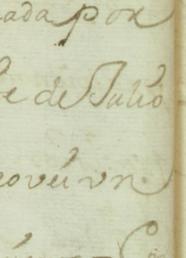 ada por
e de Julio
oveí un